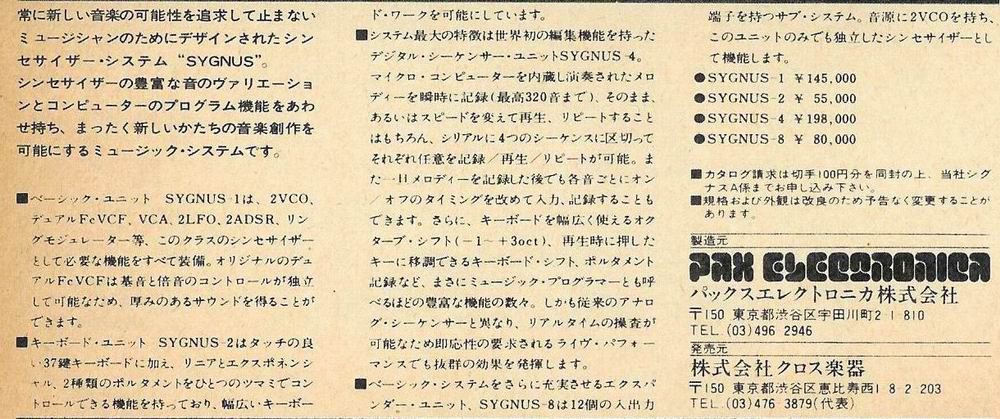 常に新しい音楽の可能性を追求して止まない
ミュージシャンのためにデザインされたシン
セサイザー・システム “SYGNUS”。
シンセサイザーの豊富な音のヴァリエーショ
ンとコンピューターのプログラム機能をあわ
せ持ち、まったく新しいかたちの音楽創作を
可能にするミュージック・システムです。
■ベーシック・ユニット SYGNUS-1は、2VCO、
デュアルFcVCF、VCA、2LFO、2ADSR、リン
グモジュレーター等、このクラスのシンセサイザー
として必要な機能をすべて装備。オリジナルのデュ
アルFcVCFは基音と倍音のコントロールが独立
して可能なため、厚みのあるサウンドを得ることが
できます。
■キーボード・ユニット SYGNUS-2はタッチの良
い37鍵キーボードに加え、リニアとエクスポネンシ
ャル、2種類のポルタメントをひとつのツマミでコン
トロールできる機能を持っており、幅広いキーボー
ド・ワークを可能にしています。
■システム最大の特徴は世界初の編集機能を持った
デジタル・シーケンサー・ユニットSYGNUS-4。
マイクロ・コンピューターを内蔵し演奏されたメロ
ディーを瞬時に記録(最高320音まで)、そのまま、
あるいはスピードを変えて再生、リピートすること
はもちろん、シリアルに4つのシーケンスに区切って
それぞれ任意を記録／再生／リピートが可能。ま
た一日メロディーを記録した後でも各音ごとにオン
／オフのタイミングを改めて入力、記録することも
できます。さらに、キーボードを幅広く使えるオク
ターブ・シフト(−1〜+3oct)、再生時に押した
キーに移調できるキーボード・シフト、ポルタメント
記録など、まさにミュージック・プログラマーとも呼
べるほどの豊富な機能の数々。しかも従来のアナロ
グ・シーケンサーと異なり、リアルタイムの操査が
可能なため即応性の要求されるライヴ・パフォー
マンスでも抜群の効果を発揮します。
■ベーシック・システムをさらに充実させるエクスパ
ンダー・ユニット、SYGNUS-8は12個の入出力
端子を持つサブ・システム。音源に2VCOを持ち、
このユニットのみでも独立したシンセサイザーとし
て機能します。
●SYGNUS-1 ￥145,000
●SYGNUS-2 ￥ 55,000
●SYGNUS-4 ￥198,000
●SYGNUS-8 ￥ 80,000
■カタログ請求は切手100円分を同封の上、当社シグ
ナスA係までお申し込み下さい。
■規格および外観は改良のため予告なく変更することが
あります。
製造元
PAX ELECTRONICA
パックスエレクトロニカ株式会社
〒150 東京都渋谷区宇田川町2-1-810
TEL.(03)496-2946
発売元
株式会社クロス楽器
〒150 東京都渋谷区恵比寿西1-8-2-203
TEL.(03)476-3879(代表)